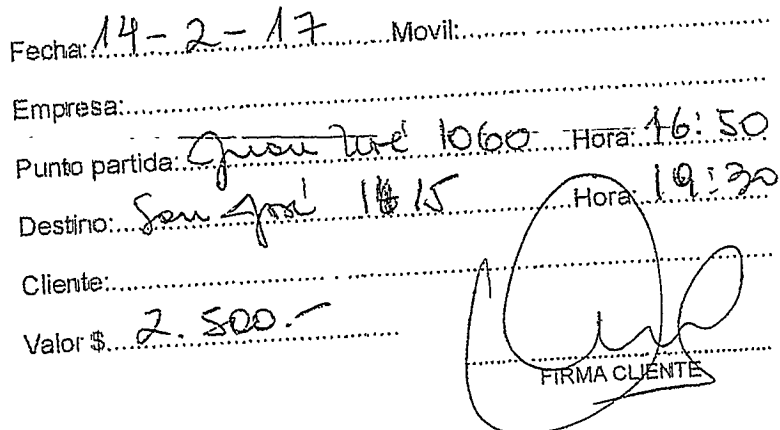 Fecha: 14-2-17 Movil:
Empresa:
Punto partida: 1060 Hora: 16:50
Destino: San José 15 Hora: 19:30
Cliente:
Valor $ 2.500.-
FIRMA CLIENTE